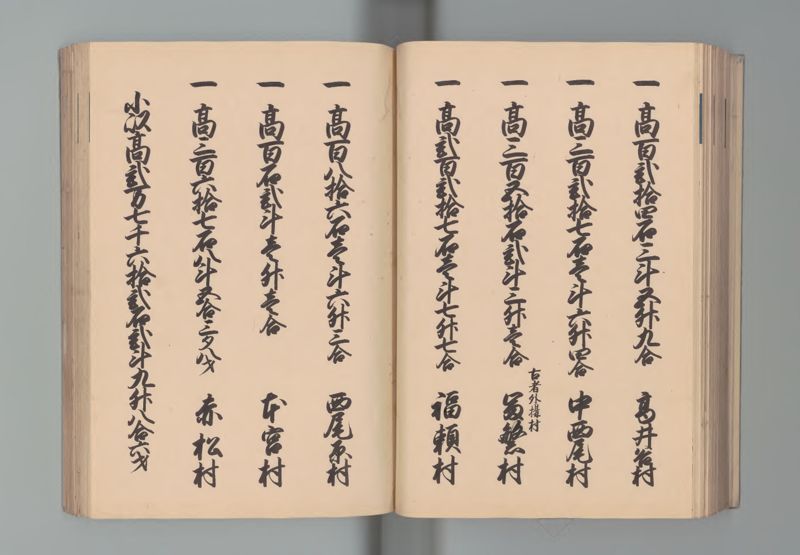 一 高百弐拾四石三斗五升九合 高井谷村
一 高三百弐拾七石壱斗六升四合 中西尾村
古者外様村
一 高三百五拾石弐斗三升壱合 村
一 高弐百弐拾七石壱斗七升七合 福頼村
一 高百八拾六石壱斗六升三合 西尾原村
一 高百石弐斗壱升壱合 本宮村
一 高三百六拾七石八斗五合三夕八才 赤松村
小以高弐万七千六拾弐石弐斗九升八合六才